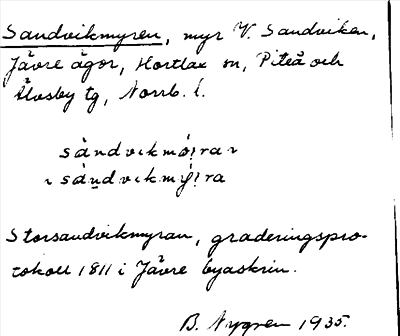 Sandvikmyren, myr V. Sandviken,
Jävre ägor, Hortlax sn, Piteå och
Älvsby tg, Norrb. l.
sàndvɩkmø̀i̯ra ɩ
ɩ sàndvɩkmýi̯ra
Storsandvikmyran, graderingspro-
tokoll 1811 i Jävre byaskrin.
B. Nygren 1935.